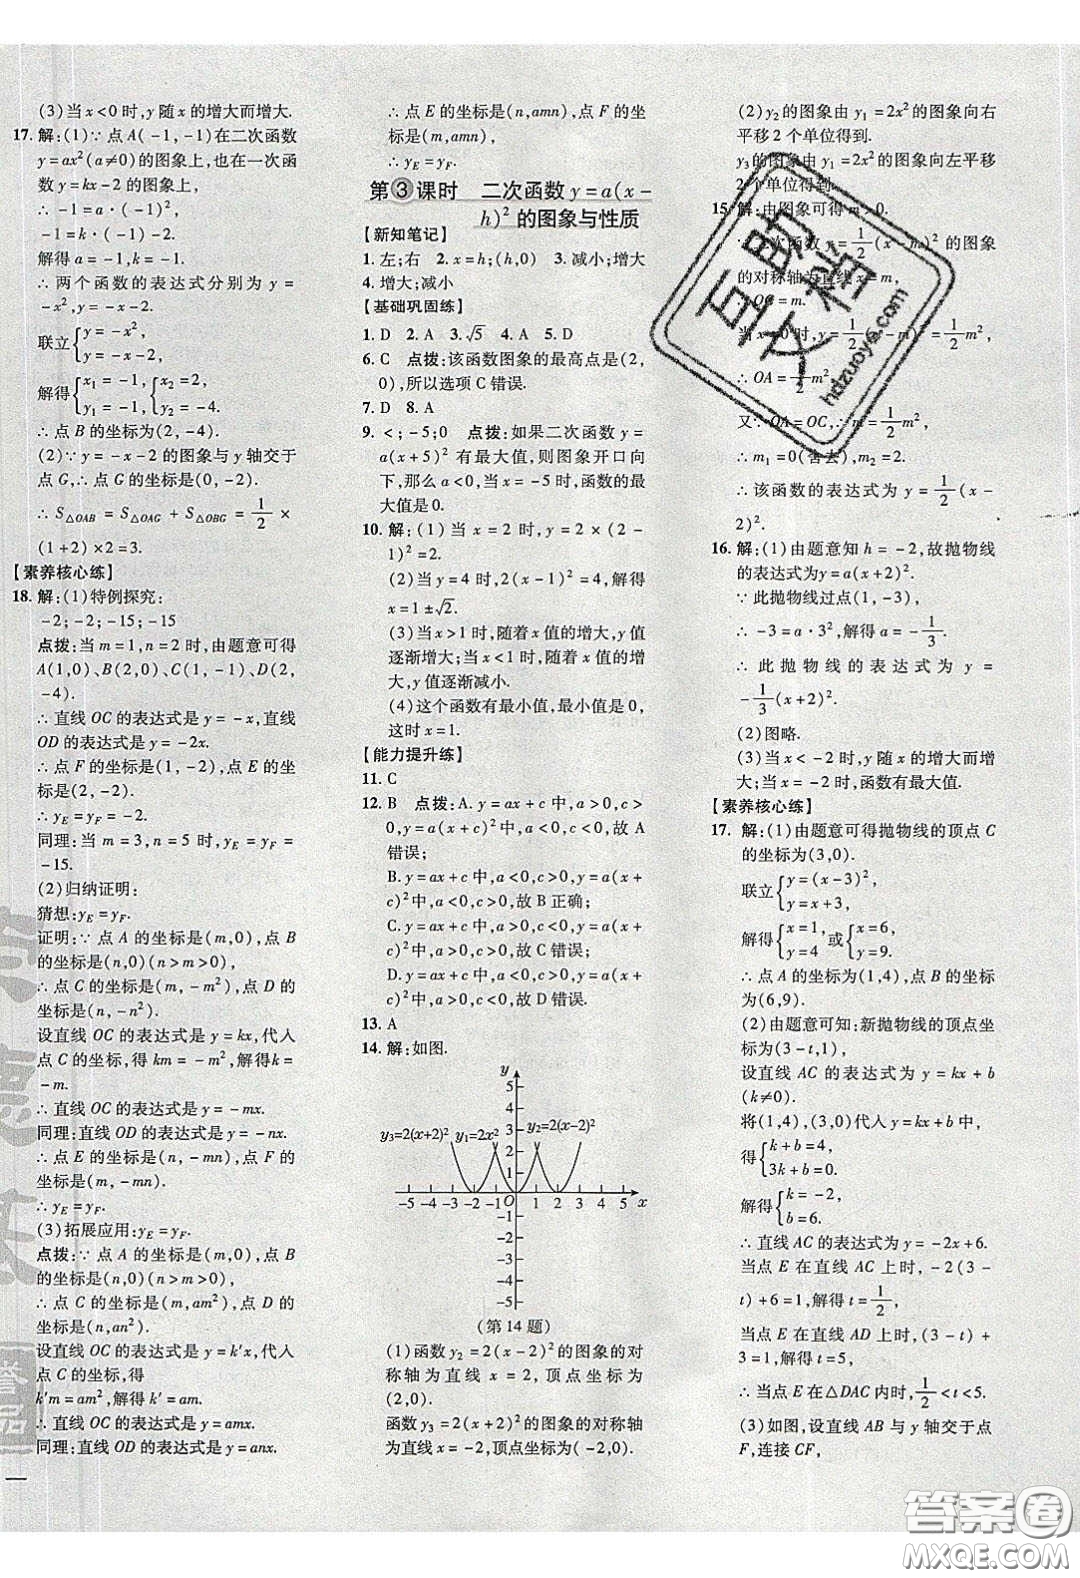 (3)当 x<0 时,y 随 x 的增大而增大.
17. 解:(1)∵点 A(-1,-1)在二次函数
y=ax²(a≠0)的图象上,也在一次函
数 y=kx-2 的图象上,
∴ -1=a·(-1)²,
-1=k·(-1)-2.
解得 a=-1,k=-1.
∴两个函数的表达式分别为 y=
-x²,y=-x-2.
联立{y=-x²,
y=-x-2.
解得{x₁=-1, {x₂=2,
y₁=-1, y₂=-4.
∴点 B 的坐标为(2,-4).
(2)∵y=-x-2 的图象与 y 轴交于
点 G,∴点 G 的坐标是(0,-2).
∴ S△OAB=S△OAG+S△OBG=1/2×
(1+2)×2=3.
【素养核心练】
18. 解:(1)特例探究:
-2;-2;-15;-15
点拨:当 m=1,n=2 时,由题意可得
A(1,0)、B(2,0)、C(1,-1)、D(2,
-4).
∴直线 OC 的表达式是 y=-x,直线
OD 的表达式是 y=-2x.
∴点 F 的坐标是(1,-2),点 E 的坐
标是(2,-2).
∴yE=yF=-2.
同理:当 m=3,n=5 时,yE=yF=
-15.
(2)归纳证明:
猜想:yE=yF.
证明:∵点 A 的坐标是(m,0),点 B
的坐标是(n,0)(n>m),
∴点 C 的坐标是(m,-m²),点 D 的
坐标是(n,-n²).
设直线 OC 的表达式是 y=kx,代人
点 C 的坐标,得 km=-m²,解得 k=
-m.
∴直线 OC 的表达式是 y=-mx.
同理:直线 OD 的表达式是 y=-nx.
∴点 E 的坐标是(n,-mn),点 F 的
坐标是(m,-mn).
∴yE=yF.
(3)拓展应用:yE=yF.
点拨:∵点 A 的坐标是(m,0),点 B
的坐标是(n,0)(n>m),
∴点 C 的坐标是(m,am²),点 D 的
坐标是(n,an²).
设直线 OC 的表达式是 y=k'x,代入
点 C 的坐标,得
k'm=am²,解得 k'=am.
∴直线 OC 的表达式是 y=amx.
同理:直线 OD 的表达式是 y=anx.
∴点 E 的坐标是(n,amn),点 F 的坐
标是(m,amn).
∴yE=yF.
第③课时 二次函数 y=a(x-
h)² 的图象与性质
【新知笔记】
1. 左;右 2. x=h;(h,0) 3. 减小;增大
4. 增大;减小
【基础巩固练】
1. D 2. A 3. √5 4. A 5. D
6. C 点拨:该函数图象的最高点是(2,
0),所以选项 C 错误.
7. D 8. A
9. <;-5;0 点拨:如果二次函数 y=
a(x+5)² 有最大值,则图象开口向
下,那么 a<0,当 x=-5 时,函数的最
大值是 0.
10. 解:(1)当 x=2 时,y=2×(2-
1)²=2.
(2)当 y=4 时,2(x-1)²=4,解得
x=1±√2.
(3)当 x>1 时,随着 x 值的增大,y 值
逐渐增大;当 x<1 时,随着 x 值的增
大,y 值逐渐减小.
(4)这个函数有最小值,最小值是 0,
这时 x=1.
【能力提升练】
11. C
12. B 点拨:A. y=ax+c 中,a>0,c>
0,y=a(x+c)² 中,a>0,c<0,故 A
错误;
B. y=ax+c 中,a<0,c>0,y=a(x+
c)² 中,a<0,c>0,故 B 正确;
C. y=ax+c 中,a>0,c<0,y=a(x+
c)² 中,a<0,c<0,故 C 错误;
D. y=ax+c 中,a<0,c>0,y=a(x+
c)² 中,a>0,c>0,故 D 错误.
13. A
14. 解:如图.
y
5
4
3
y₃=2(x+2)² y₁=2x² y₂=2(x-2)²
2
1
-5 -4 -3 -2 -1 O 1 2 3 4 5 x
-1
-2
-3
-4
-5
(第 14 题)
(1)函数 y₂=2(x-2)² 的图象的对
称轴为直线 x=2,顶点坐标为
(2,0);
函数 y₃=2(x+2)² 的图象的对称轴
为直线 x=-2,顶点坐标为(-2,0).
(2)y₂ 的图象由 y₁=2x² 的图象向右
平移 2 个单位得到.
y₃ 的图象由 y₁=2x² 的图象向左平移
2 个单位得到.
15. 解:由图象可得 m>0.
∵二次函数 y=1/2(x-m)² 的图象
的对称轴为直线 x=m,
∴OC=m.
当 x=0 时,y=1/2(0-m)²=1/2m²,
∴OA=1/2m².
又∵OA=OC,∴m=1/2m².
∴m₁=0(舍去),m₂=2.
∴该函数的表达式为 y=1/2(x-
2)².
16. 解:(1)由题意知 h=-2,故抛物线
的表达式为 y=a(x+2)².
∵此抛物线过点(1,-3),
∴-3=a·3²,解得 a=-1/3.
∴此抛物线的表达式为 y=
-1/3(x+2)².
(2)图略.
(3)当 x<-2 时,y 随 x 的增大而增
大;当 x=-2 时,函数有最大值.
【素养核心练】
17. 解:(1)由题意可得抛物线的顶点 C
的坐标为(3,0).
联立{y=(x-3)²,
y=x+3,
解得{x=1, 或{x=6,
y=4 y=9.
∴点 A 的坐标为(1,4),点 B 的坐标
为(6,9).
(2)由题意可知:新抛物线的顶点坐
标为(3-t,1),
设直线 AC 的表达式为 y=kx+b
(k≠0).
将(1,4),(3,0)代人 y=kx+b 中,
得{k+b=4,
3k+b=0,
解得{k=-2,
b=6.
∴直线 AC 的表达式为 y=-2x+6.
当点 E 在直线 AC 上时,-2(3-
t)+6=1,解得 t=1/2,
当点 E 在直线 AD 上时,(3-t)+
3=1,解得 t=5,
∴当点 E 在△DAC 内时,1/2<t<5.
(3)如图,设直线 AB 与 y 轴交于点
F,连接 CF,
百助
文档
hdzuoye.com
答案圈
MXQE.COM